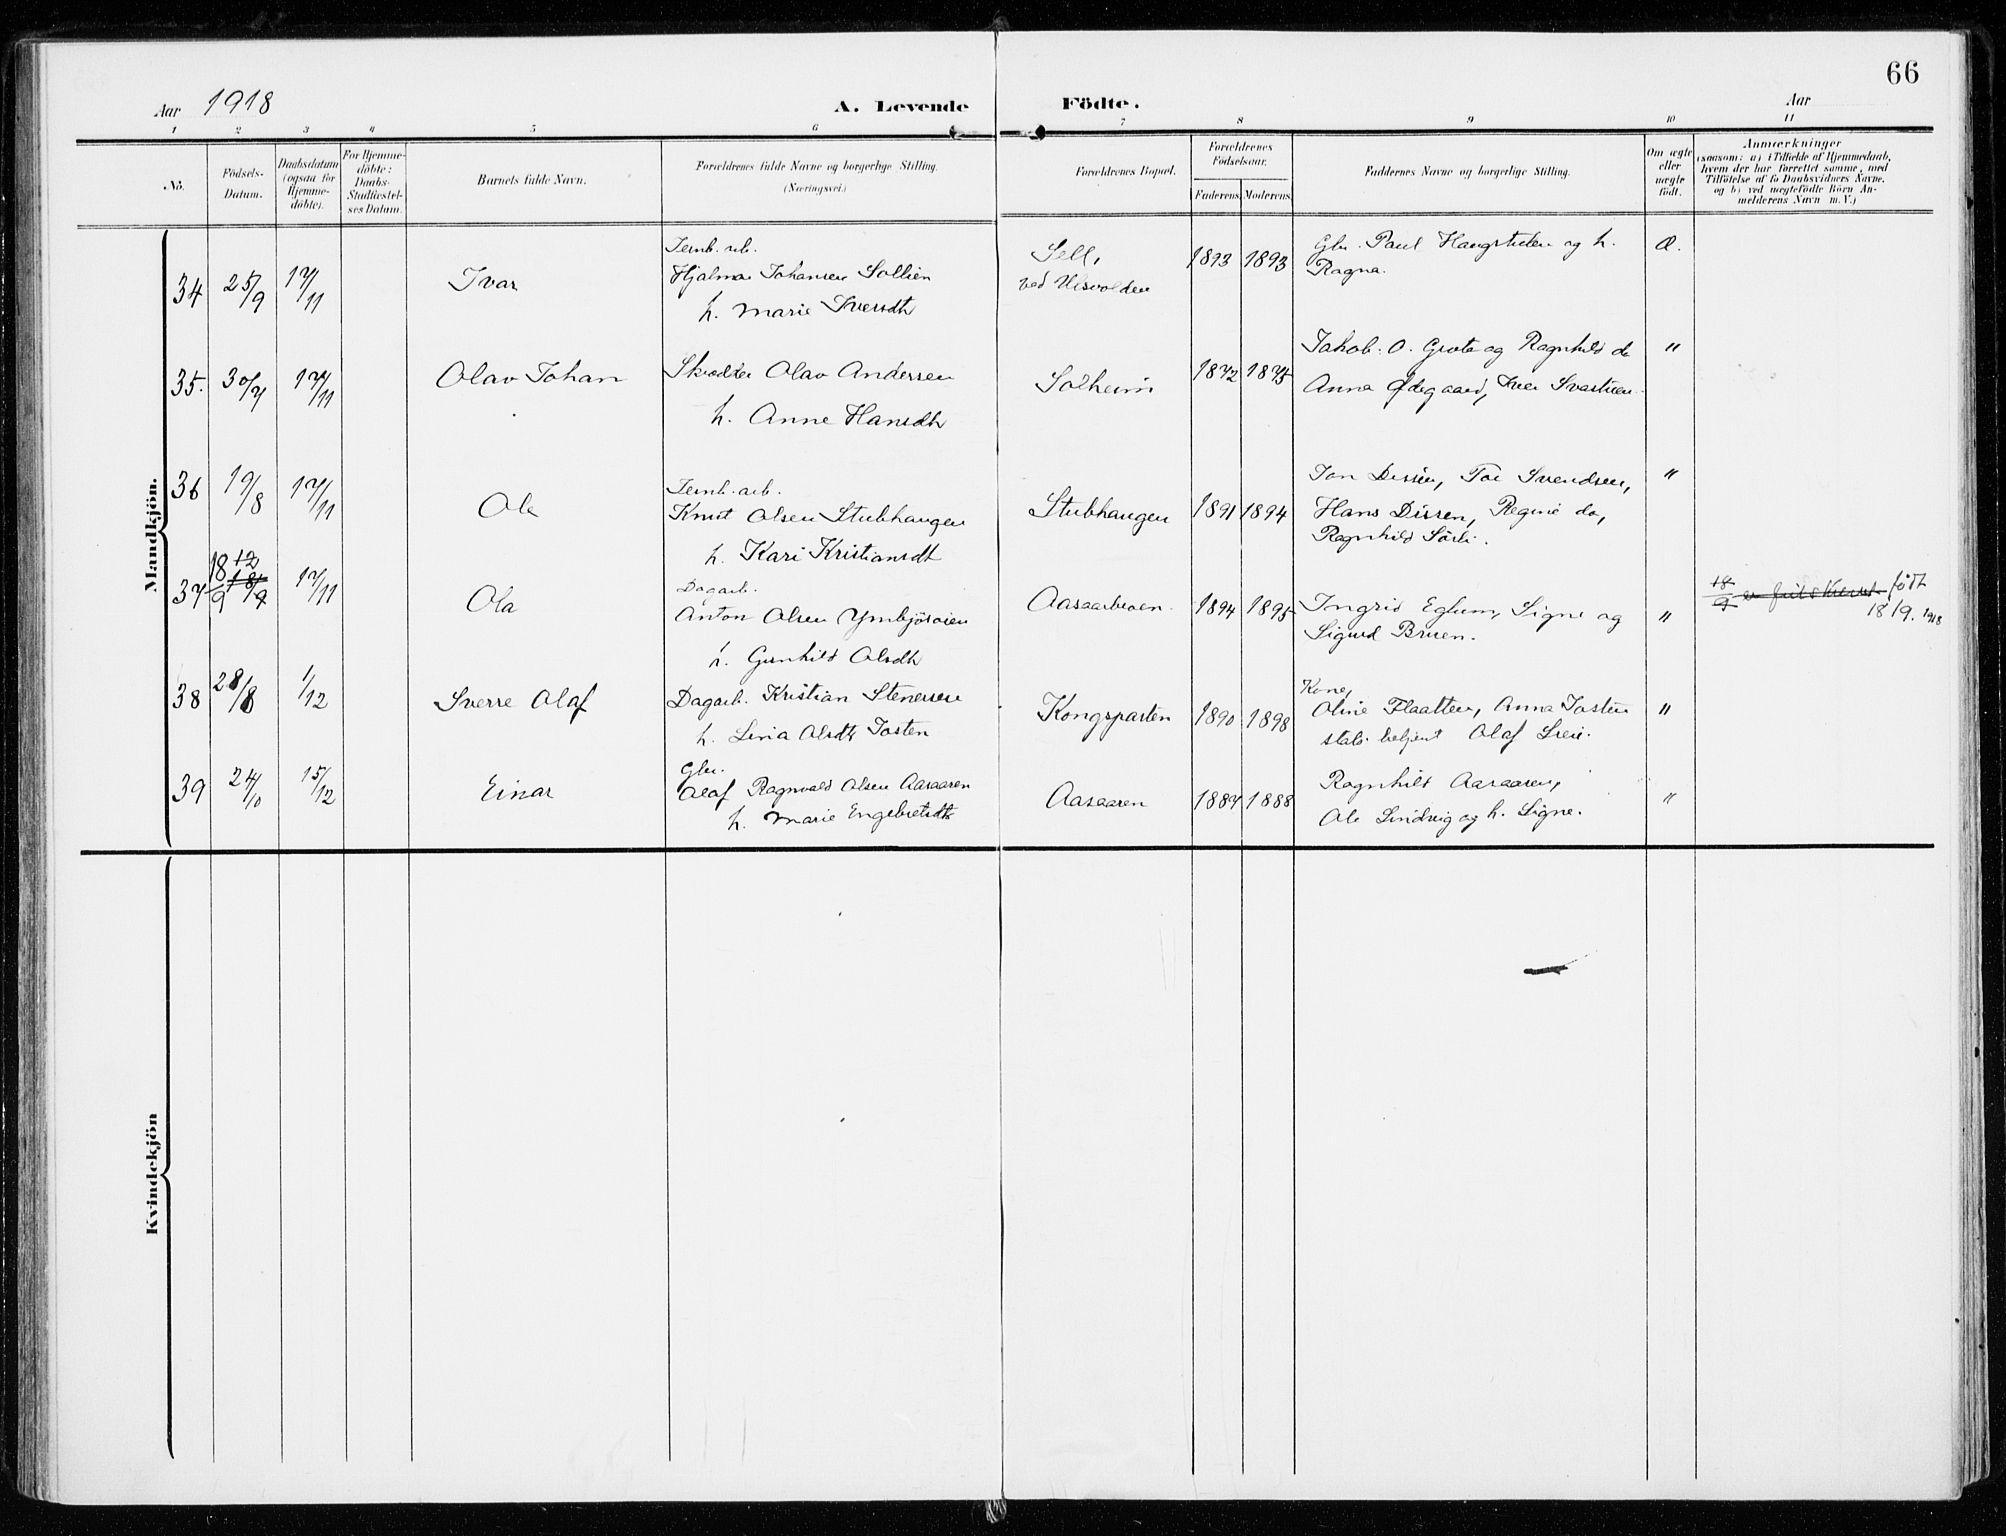 66
Aar 1918
A. Levende Födte.
Aar
1 2 3 4 5 6 7 8 9 10 11
No.
Födsels-Datum.
Daabsdatum (ogsaa for Hjemme-döbte).
For Hjemme-döbte: Daabs-Stadfæstel-ses Datum.
Barnets fulde Navn.
Forældrenes fulde Navne og borgerlige Stilling. (Næringsvei.)
Forældrenes Bopæl.
Forældrenes Födselsaar.
Faderens Moderens
Faddernes Navne og borgerlige Stilling.
Om ægte eller uægte födt.
Anmærkninger
(saasom: a) i Tilfælde af Hjemmedaab,
hvem der har forrettet samme, med
Tilföielse af to Daabsvidners Navne,
og b) ved uægtefödte Börn An-
melderens Navn m. V.)
Mandkjön.
Jernb. arb.
34 25/9 17/11 Ivar Hjalmar Johansen Sollien Sell, 1893 1893 Gbr. Paul Haugstulen og h. Æ.
h. Marie Iversdtr ved Ulsvolden Ragna.
35. 30/7 17/11 Olav Johan Skrædder Olav Andersen Solheim 1872 1875 Jakob. O. Grote og Ragnhild do "
h. Anne Hansdtr Anna Ødegaard, Iver Svastuen.
36 19/8 17/11 Ole Jernb. arb. Jon Dissen, Tor Svendsen, "
Knut Olsen Stubhaugen Stubhaugen 1891 1894 Hans Dissen, Regine do,
h. Kari Kristiansdtr Ragnhild Sörli.
37 18/9 12 18/9 17/11 Ola Dagarb.
Anton Olsen Aasaarbroen 1894 1895 Ingrid Eglum, Signe og " 18/9 født
h. Gunhild Olsdtr Sigurd Bruen. 18/9. 1918
38 28/8 1/12 Sverre Olaf Dagarb. Kristian Stenersen Kongsparten 1890 1898 Kone, Oline Flaatten, Anna Josten "
h. Lina Olsdtr Josten Olaf
39 24/10 15/12 Einar Gbr.
Olaf Ragnvald Olsen Aasaaren Aasaaren 1887 1888 Ragnhild Aasaaren, "
h. Marie Engebretsdtr Ole Lindvig og h. Signe.
Kvindekjön